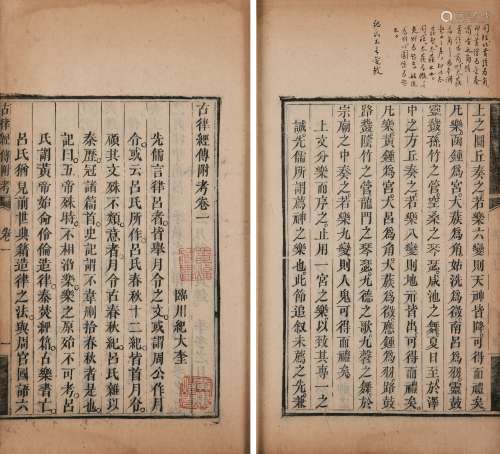 上之圜丘奏之若樂六變則天神皆降可得而禮矣
凡樂函鍾爲宮大蔟爲角姑洗爲徵南呂爲羽靈鼓
靈鼗孫竹之管空桑之琴瑟咸池之舞夏日至於澤
中之方丘奏之若樂八變則地示皆出可得而禮矣
凡樂黃鍾爲宮大呂爲角大蔟爲徵應鍾爲羽路鼓
路鼗陰竹之管龍門之琴瑟九德之歌九磬之舞於
宗廟之中奏之若樂九變則人鬼可得而禮矣
上文分樂而序之止用一宮之樂以致其專一之
誠先儒所謂薦神之樂也此節追叙未薦之先兼
古律經傳附考卷一
臨川紀大奎
先儒言律呂者皆舉月令之文或謂周公作月
令或云呂氏所作呂氏春秋十二紀皆首月令
顧其文殊不類意者月令古春秋紀呂氏雜以
秦歷冠諸篇首史記謂不韋刪拾春秋者是也
記曰五帝殊時不相沿樂樂之原始不可考呂
氏謂黃帝始命伶倫造律秦焚經籍古樂者亡
呂氏見前世典籍造律之法與周官國語六
古律經傳附考 卷一 一